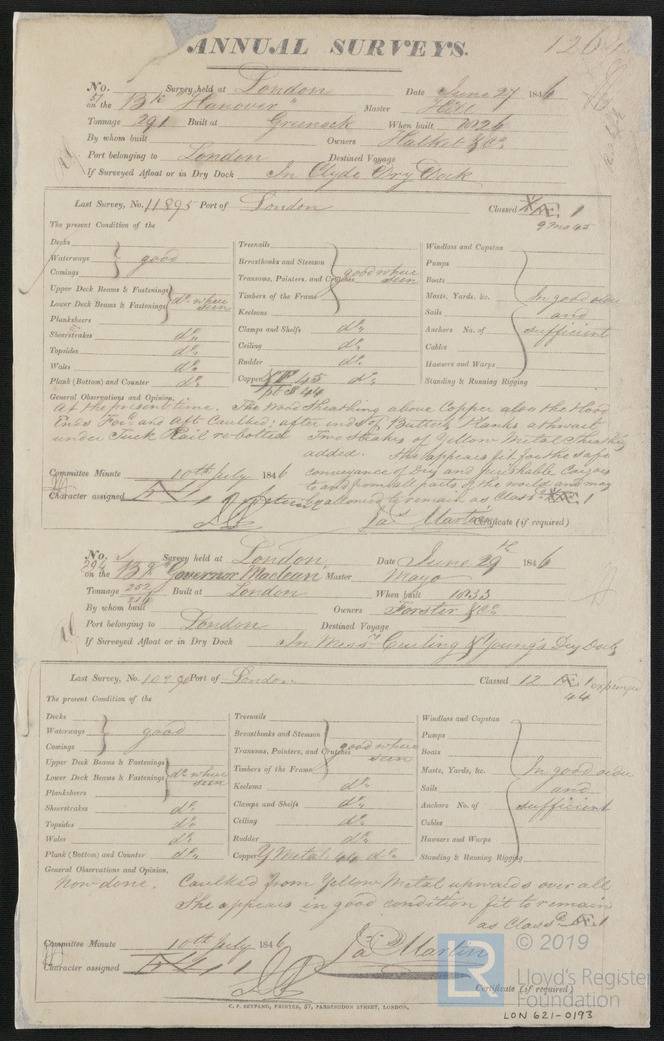 ANNUAL SURVEYS.
No. Survey held at London Date June 27 1846
57 on the Bk "Hanover" Master Hill
Tonnage 291 Built at Grenock When built 1826
By whom built Owners Halket & Co
Port belonging to London Destined Voyage
If Surveyed Afloat or in Dry Dock In Clyde Dry Dock
Last Survey, No. 11895 Port of London Classed Æ 1
9 mo 45
The present Condition of the
Decks
Waterways good
Comings
Upper Deck Beams & Fastenings
Lower Deck Beams & Fastenings do where seen
Planksheers
Sheerstrakes do
Topsides do
Wales do
Plank (Bottom) and Counter do
Treenails
Breasthooks and Stemson
Transoms, Pointers, and Crutches good where seen
Timbers of the Frame
Keelsons
Clamps and Shelfs do
Ceiling do
Rudder do
Copper 45 do
pt 44
Windlass and Capstan
Pumps
Boats
Masts, Yards, &c. In good order
Sails and
Anchors No. of sufficient
Cables
Hawsers and Warps
Standing & Running Rigging
General Observations and Opinion,
At the present time. The Wood Sheathing above Copper also the Hood
Ends For'd and Aft Caulked; after ends of Buttock Planks athwart
under Tuck Rail re-bolted Two Strakes of Yellow Metal Sheathing
added. She appears fit for the safe
conveyance of Dry and perishable Cargoes
to and from all parts of the world and may
be allowed to remain as Classd Æ 1
Committee Minute 10th July 1846
Character assigned
Jas Martin
Certificate (if required)
No. Survey held at London Date June 29th 1846
294 on the Bk "Governor Maclean" Master Mayo
Tonnage 252 Built at London When built 1833
By whom built Owners Forster & Co
Port belonging to London Destined Voyage
If Surveyed Afloat or in Dry Dock In Messrs Curling & Young's Dry Dock
Last Survey, No. 10290 Port of London Classed 12 Æ 1 expired
44
The present Condition of the
Decks
Waterways good
Comings
Upper Deck Beams & Fastenings
Lower Deck Beams & Fastenings do where seen
Planksheers
Sheerstrakes do
Topsides do
Wales do
Plank (Bottom) and Counter do
Treenails
Breasthooks and Stemson
Transoms, Pointers, and Crutches good where seen
Timbers of the Frame
Keelsons do
Clamps and Shelfs do
Ceiling do
Rudder do
Copper Y Metal 44 do
Windlass and Capstan
Pumps
Boats
Masts, Yards, &c. In good order
Sails and
Anchors No. of sufficient
Cables
Hawsers and Warps
Standing & Running Rigging
General Observations and Opinion,
Now done. Caulked from Yellow Metal upwards over all
She appears in good condition fit to remain
as Classd Æ 1
Committee Minute 10th July 1846
Character assigned
Jas Martin
Certificate (if required)
C. F. SEYFANG, PRINTER, 57, FARRINGDON STREET, LONDON,
LR
© 2019
Lloyd's Register
Foundation
LON 621-0193